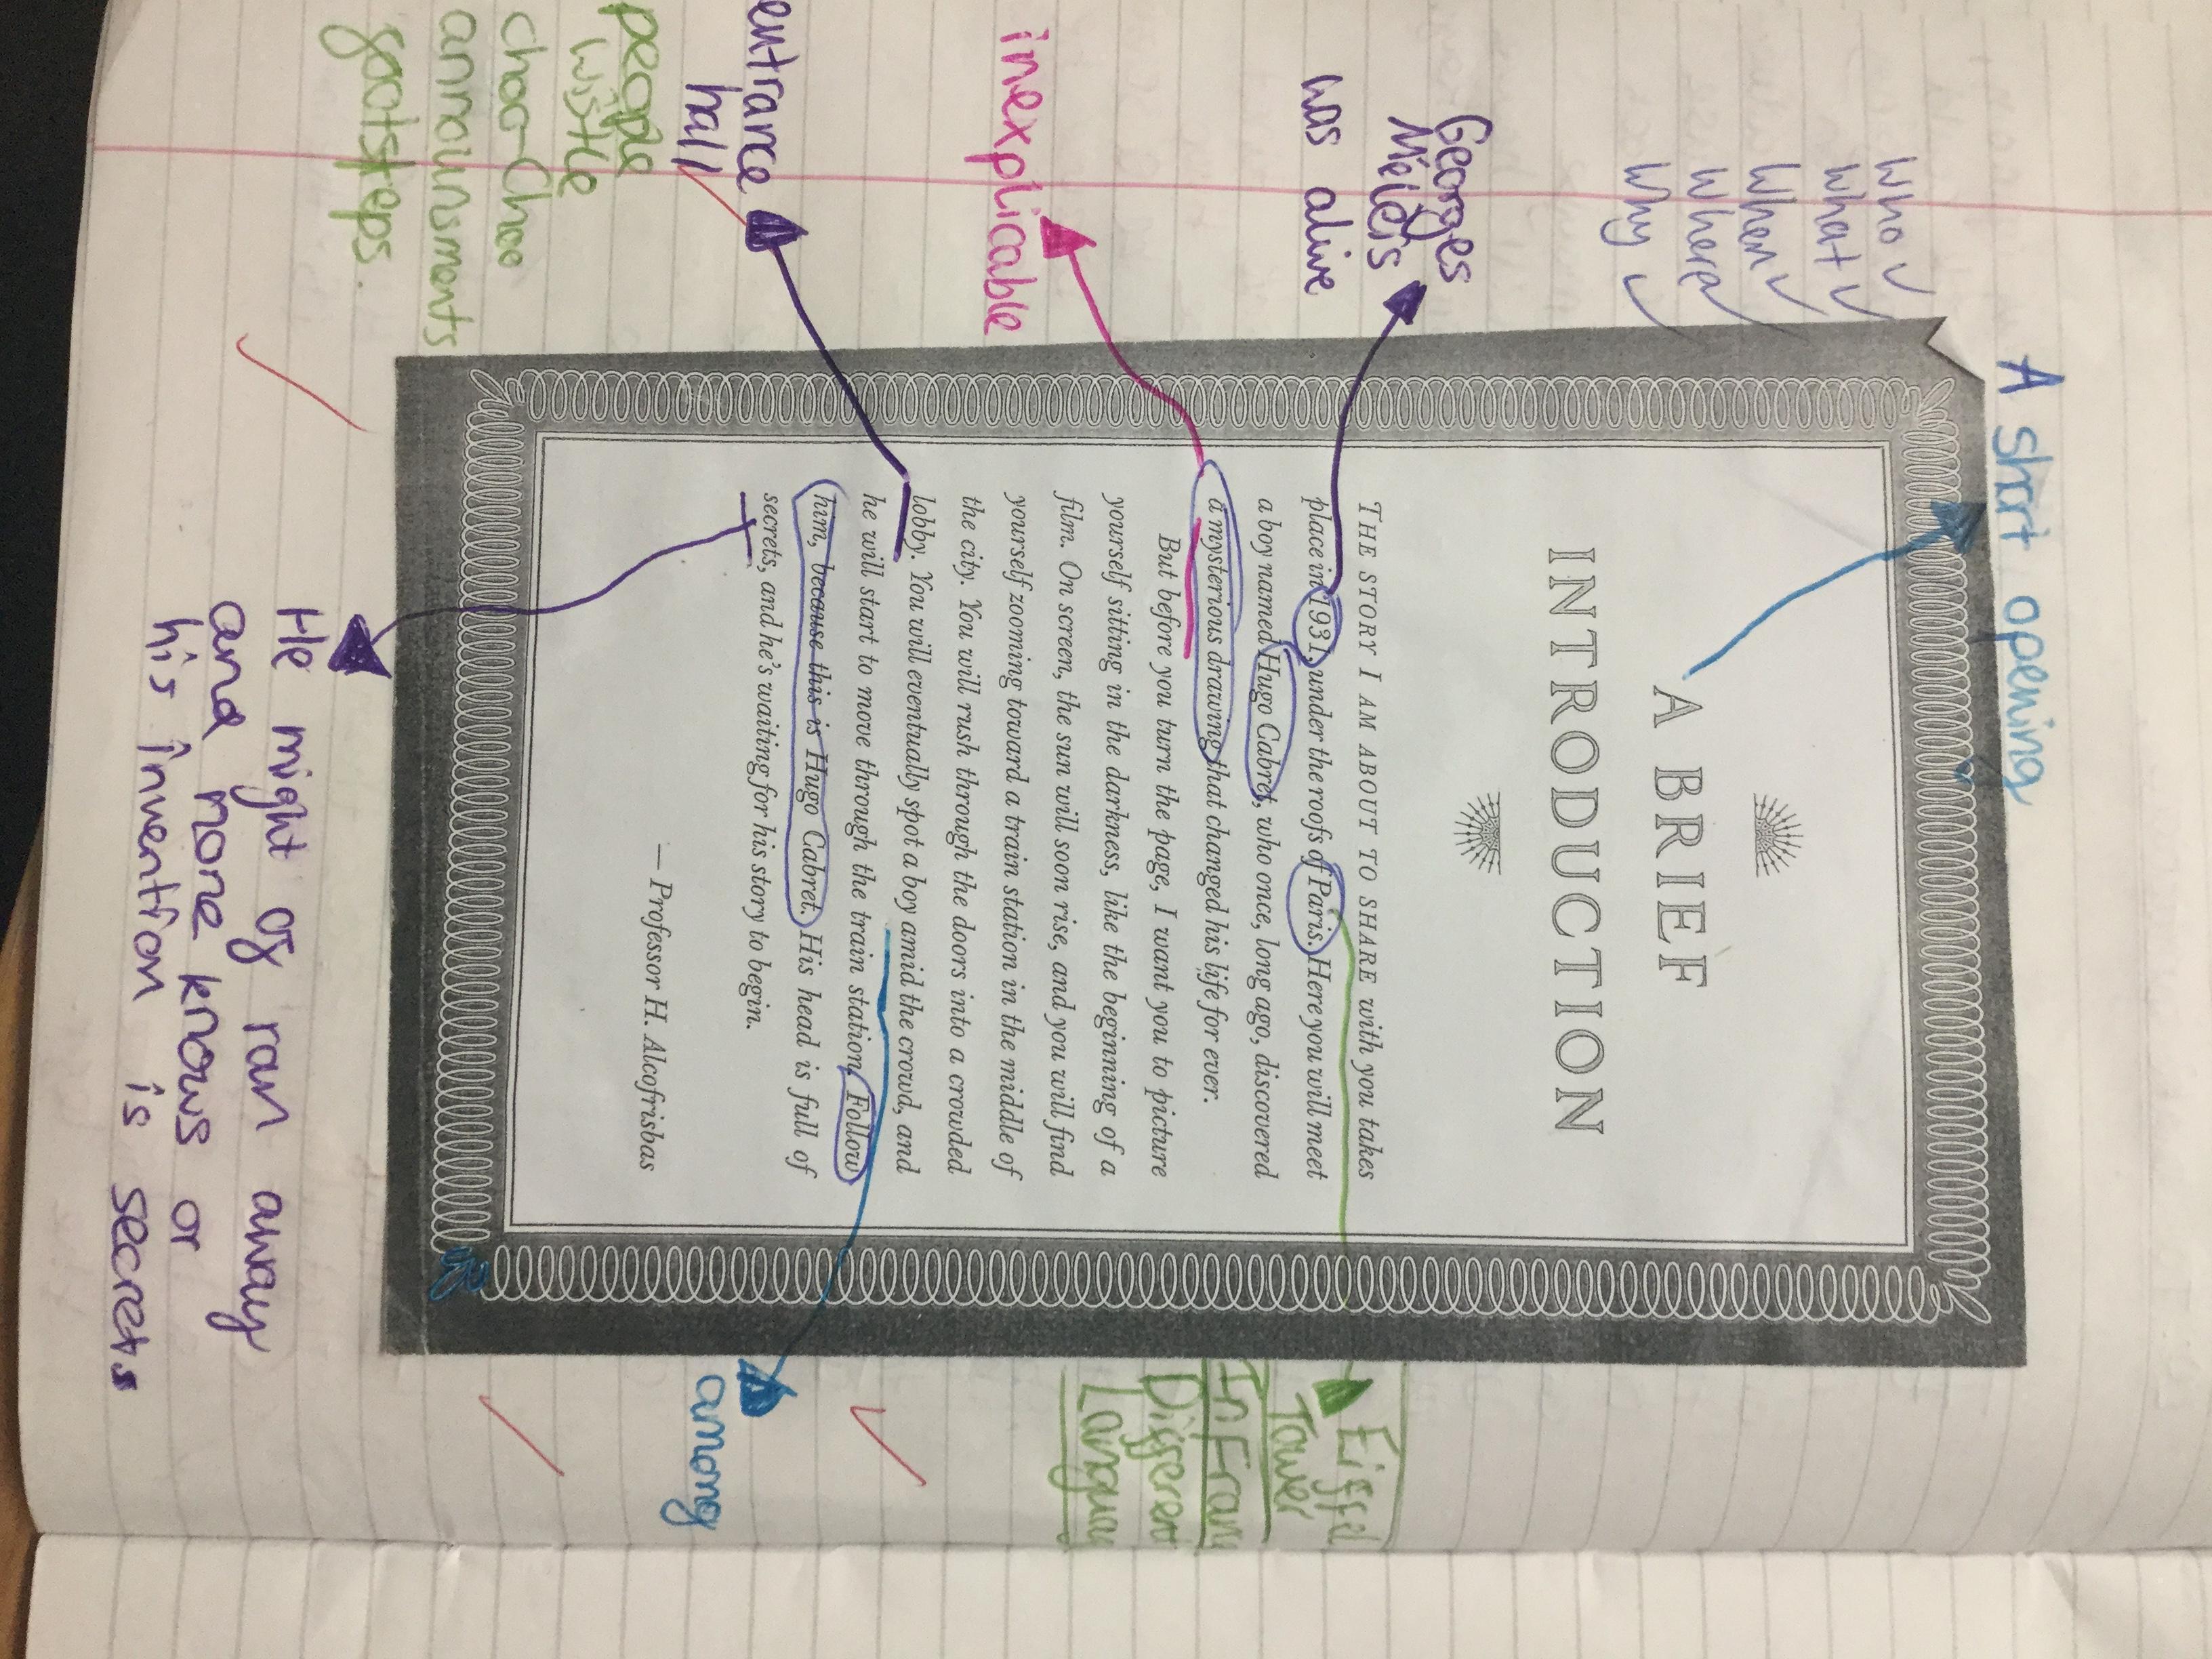 A short opening
who ✓
what ✓
when ✓
where ✓
why ✓
A BRIEF
INTRODUCTION
THE STORY I AM ABOUT TO SHARE with you takes
place in 1931, under the roofs of Paris. Here you will meet
a boy named Hugo Cabret, who once, long ago, discovered
a mysterious drawing that changed his life for ever.
But before you turn the page, I want you to picture
yourself sitting in the darkness, like the beginning of a
film. On screen, the sun will soon rise, and you will find
yourself zooming toward a train station in the middle of
the city. You will rush through the doors into a crowded
lobby. You will eventually spot a boy amid the crowd, and
he will start to move through the train station. Follow
him, because this is Hugo Cabret. His head is full of
secrets, and he's waiting for his story to begin.
— Professor H. Alcofrisbas
Georges
Méliès
was alive
inexplicable
entrance
hall
people
wistle
choo-choo
announsments
footsteps.
Eiffel
Tower
In Fran
Different
Langua
among
He might of ran away
and none knows or
his invention is secrets